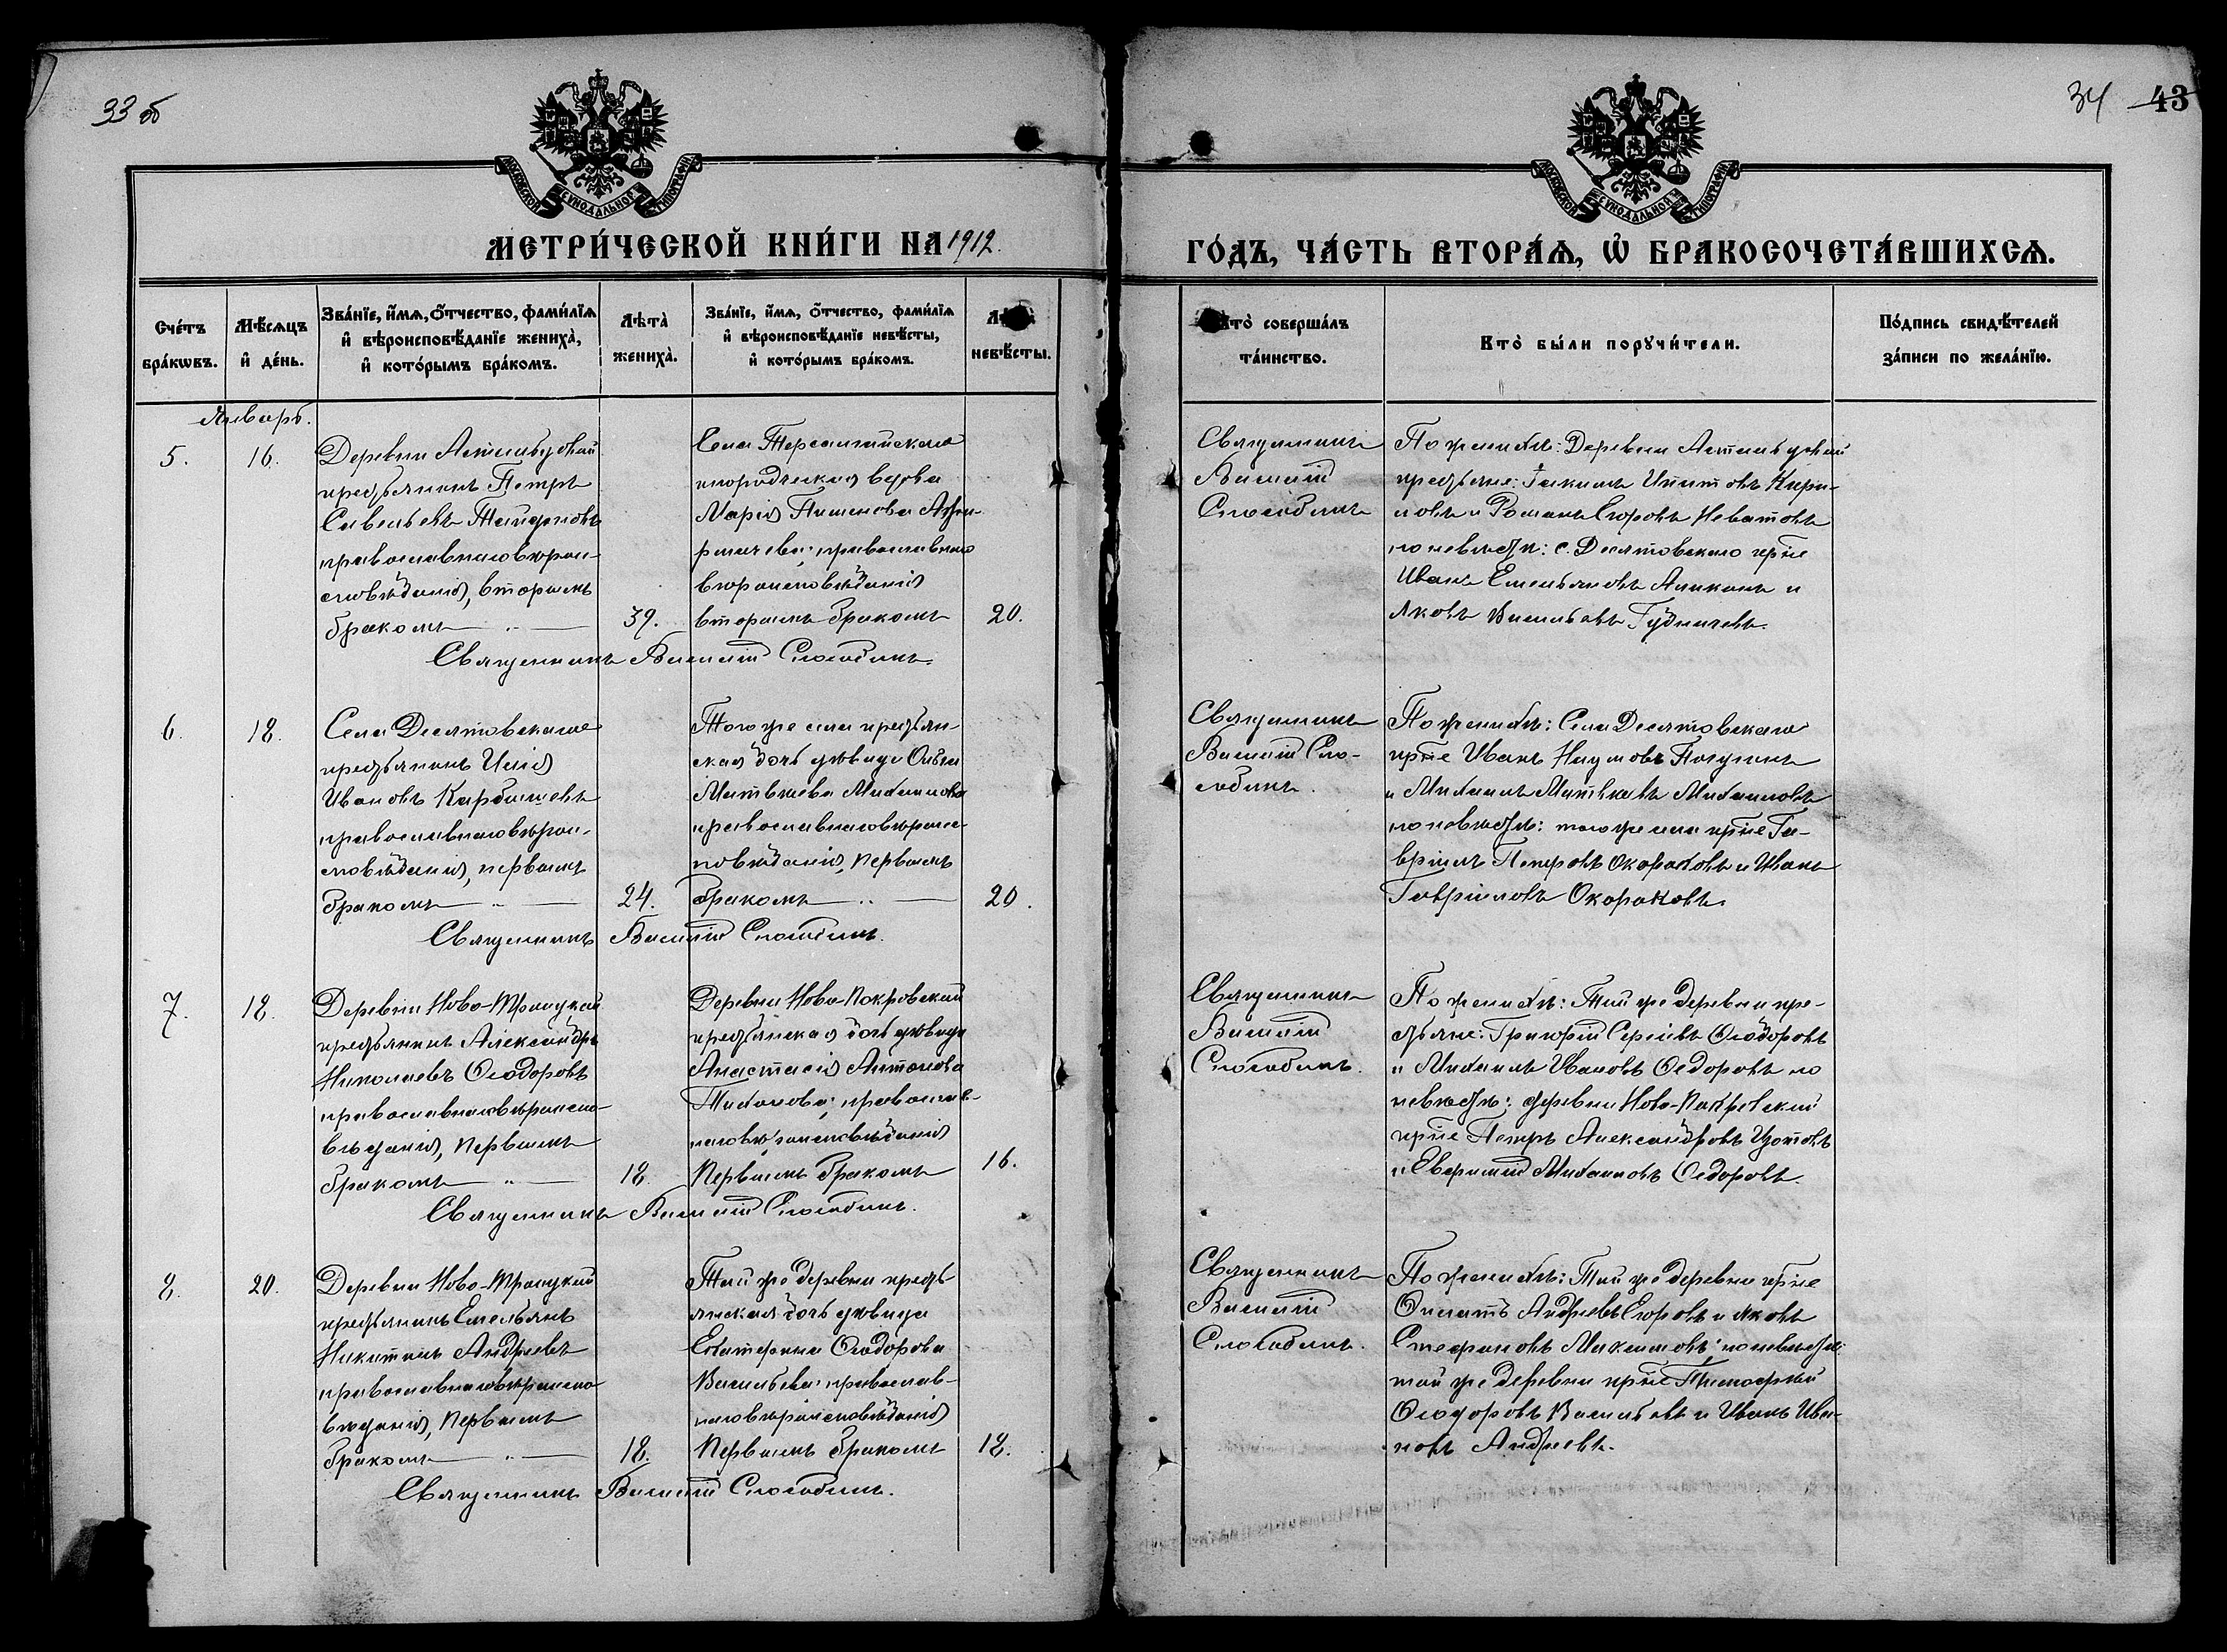 33 об
34 43
МОСКОВСКОЙ СѴНОДАЛЬНОЙ ТИПОГРАФІИ
МОСКОВСКОЙ СѴНОДАЛЬНОЙ ТИПОГРАФІИ
МЕТРИ́ЧЕСКОЙ КНИ́ГИ НА 1912.
ГО́ДЪ, ЧА́СТЬ ВТОРА́Ѧ, Ѽ БРАКОСОЧЕТА́ВШИХСѦ.
Сче́тъ бра́кѡвъ.
Мѣ́сѧцъ и҆ де́нь.
Зва́нїе, и҆́мѧ, ѻ҆́тчество, фами́лїѧ
и҆ вѣроисповѣ́данїе жениха̀,
и҆ кото́рымъ бра́комъ.
Лѣта̀ жениха̀.
Зва́нїе, и҆́мѧ, ѻ҆́тчество, фами́лїѧ
и҆ вѣроисповѣ́данїе невѣ́сты,
и҆ кото́рымъ бра́комъ.
невѣ́сты.
Кто̀ соверша́лъ
та́инство.
Кто̀ бы́ли порꙋчи́тели.
По́дпись свидѣ́телей
за́писи по жела́нїю.
Январь.
5.
16.
Деревни
крестьянинъ Петръ
Савельевъ
православнаго вѣрои-
сповѣданія, вторымъ
бракомъ
39.
Села
вдова
Марія Пименова
православнаго
вѣроисповѣданія
вторымъ бракомъ
20.
Священникъ
Василій
Слободинъ
По женихѣ: Деревни
крестьяне: Іакимъ Ипатовъ Кири-
ловъ и Романъ Егоровъ
по невѣстѣ: с. Десятовскаго кр̃не
Иванъ Емельяновъ Аникинъ и
Яковъ Васильевъ
Священникъ Василій Слободинъ.
6.
18.
Села Десятовскаго
крестьянинъ Илія
Ивановъ Карбышевъ
православнаго вѣрои-
сповѣданія, первымъ
бракомъ
24.
Того же села крестьян-
ская дочь дѣвица Ольга
Матвѣева Михаилова
православнаго вѣроис-
повѣданія, первымъ
бракомъ
20.
Священникъ
Василій Сло-
бодинъ.
По женихѣ: Села Десятовскаго
кр̃не Иванъ Наумовъ
и Михаилъ Матвѣевъ Михаиловъ
по невѣстѣ: того же села кр̃не Га-
вріилъ Петровъ Окороковъ и Иванъ
Гавріиловъ Окороковъ.
Священникъ Василій Слободинъ.
7.
18.
Деревни Ново-Троицкой
крестьянинъ Александръ
Николаевъ Ѳеодоровъ
православнаго вѣроиспо-
вѣданія, первымъ
бракомъ
18.
Деревни Ново-Покровской
крестьянская дочь дѣвица
Анастасія Антонова
Тиханова; православ-
наго вѣроисповѣданія
первымъ бракомъ
16.
Священникъ
Василій
Слободинъ.
По женихѣ: Той же деревни кре-
стьяне: Григорій Сергіевъ Ѳеодоровъ
и Михаилъ Ивановъ Ѳедоровъ по
невѣстѣ: деревни Ново-Покровской
кр̃не Петръ Александровъ Изотовъ
и Евфимій Михаиловъ Ѳедоровъ.
Священникъ Василій Слободинъ.
8.
20.
Деревни Ново-Троицкой
крестьянинъ Емельянъ
Никитинъ Андреевъ
православнаго вѣроиспо-
вѣданія, первымъ
бракомъ
18.
Той же деревни кресть-
янская дочь дѣвица
Ѳеодорова
Васильева; православ-
наго вѣроисповѣданія
первымъ бракомъ
18.
Священникъ
Василій
Слободинъ.
По женихѣ: Той же деревни кр̃не
Андреевъ Егоровъ и Яковъ
Стефановъ Максимовъ; по невѣстѣ:
той же деревни кр̃не Тимофей
Ѳеодоровъ Васильевъ и Иванъ Ива-
новъ Андреевъ.
Священникъ Василій Слободинъ.